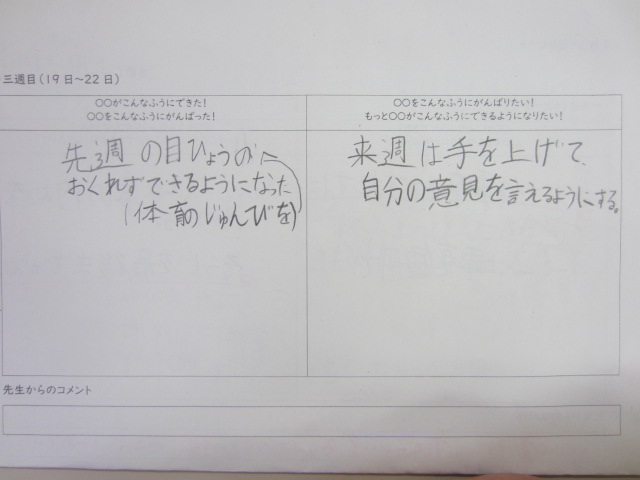 三週目(19日～22日)
○○がこんなふうにできた!
○○をこんなふうにがんばった!
○○をこんなふうにがんばりたい!
もっと○○がこんなふうにできるようになりたい!
先週の目ひょうの
おくれずできるようになった
(体育のじゅんびを)
来週は手を上げて
自分の意見を言えるようにする。
先生からのコメント